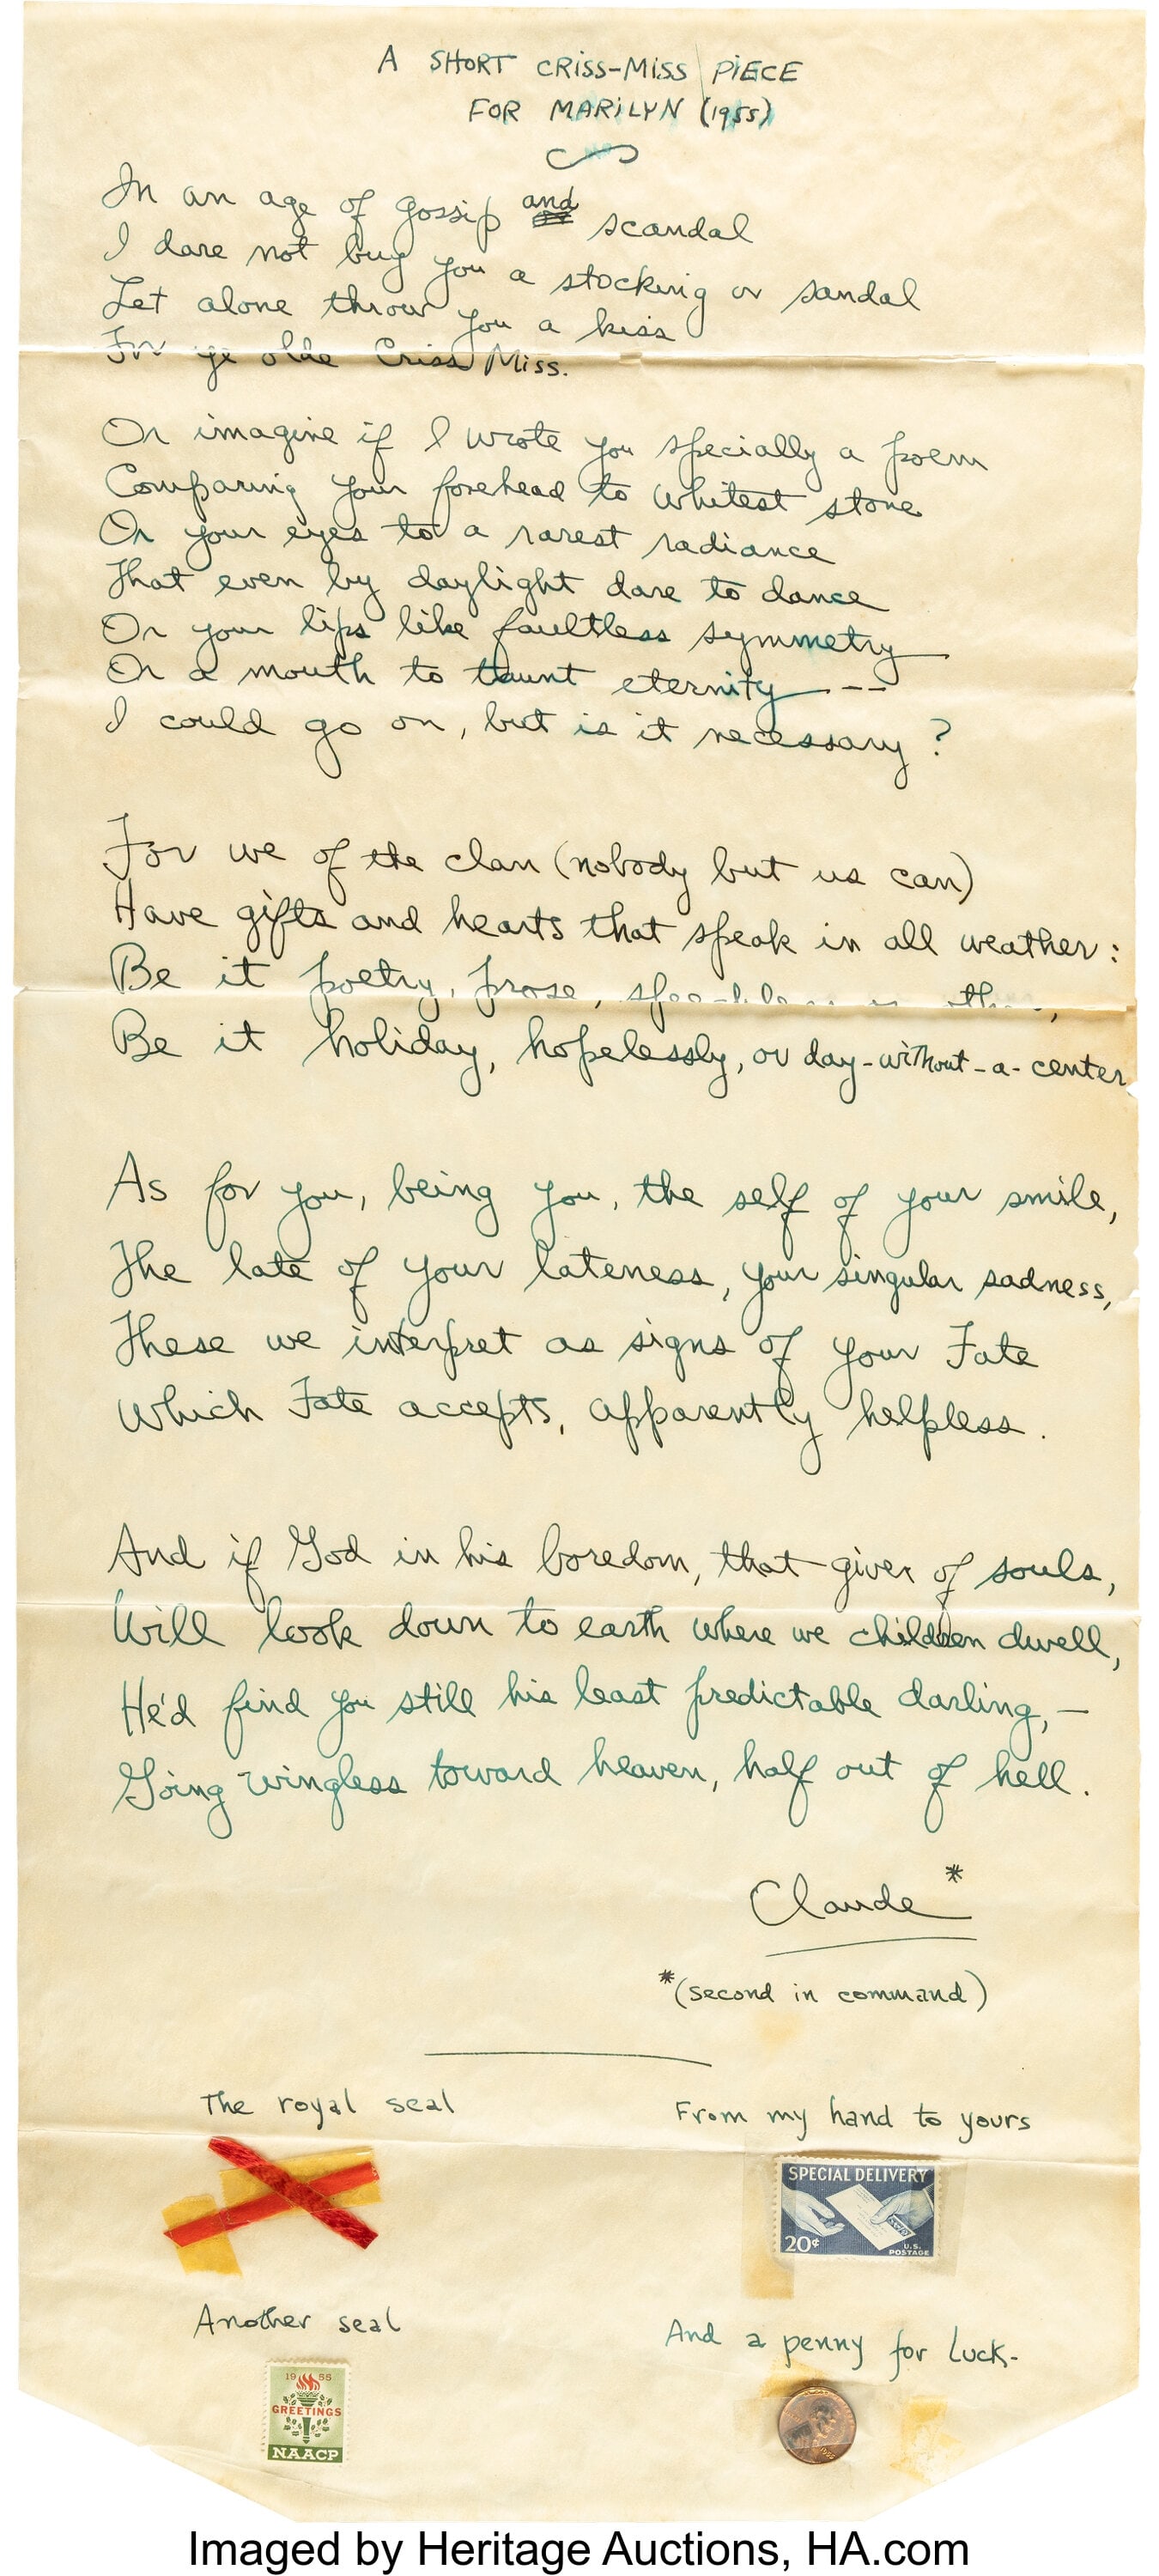 A SHORT CRISS-MISS PIECE
FOR MARILYN (1955)
In an age of gossip and scandal
I dare not buy you a stocking or sandal
Let alone throw you a kiss
For ye olde Criss Miss.
Or imagine if I wrote you specially a poem
Comparing your forehead to whitest stone
Or your eyes to a rarest radiance
That even by daylight dare to dance
Or your lips like faultless symmetry
Or a mouth to taunt eternity ---
I could go on, but is it necessary?
For we of the clan (nobody but us can)
Have gifts and hearts that speak in all weather:
Be it poetry, prose,
Be it holiday, hopelessly, or day-without-a-center
As for you, being you, the self of your smile,
The late of your lateness, your singular sadness,
These we interpret as signs of your Fate
Which Fate accepts, apparently helpless.
And if God in his boredom, that giver of souls,
Will look down to earth where we children dwell,
He'd find you still his least predictable darling, —
Going wingless toward heaven, half out of hell.
Claude*
*(second in command)
The royal seal
From my hand to yours
SPECIAL DELIVERY
20¢
U.S. POSTAGE
Another seal
And a penny for luck-
1955
GREETINGS
NAACP
Imaged by Heritage Auctions, HA.com